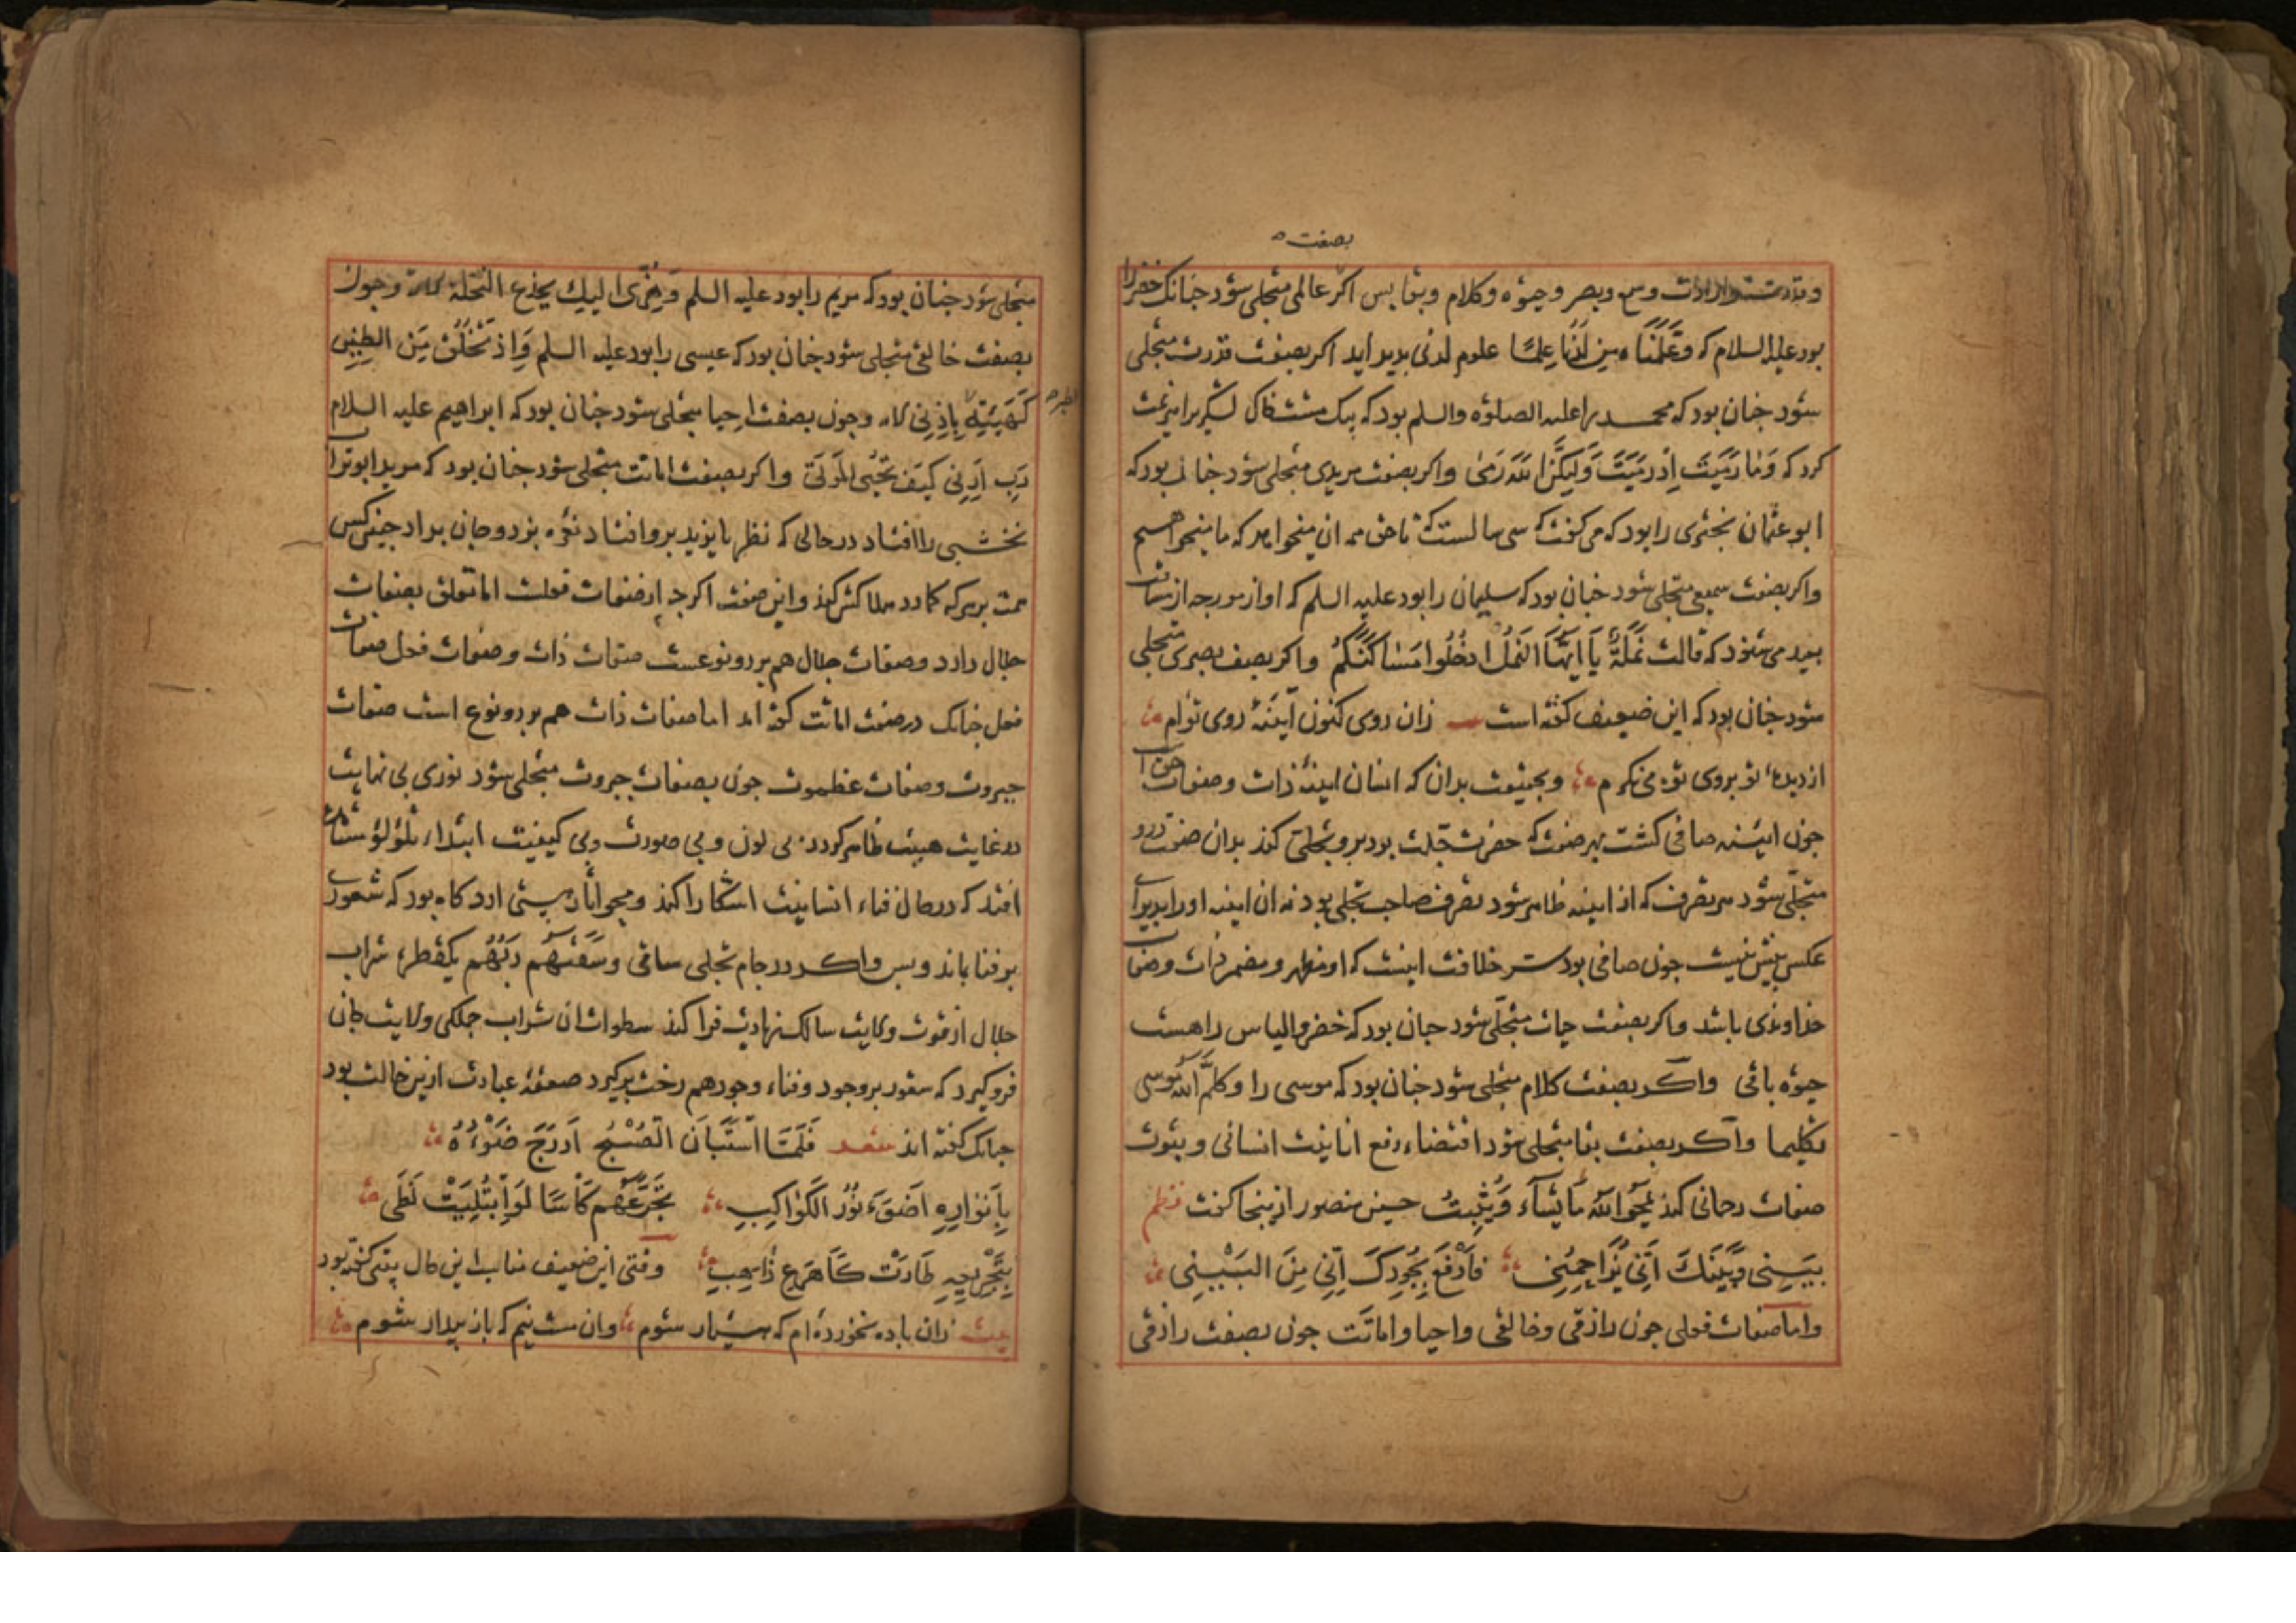 بصفت
وقدرت وارادت وسمع وبصر وحیوه وکلام وبقا پس اکر عالمی متجلی شود جنانک خضررا
بود علیه السلام که وَعَلَّمْنَاه مِن لَدُنَّا عِلْمًا علوم لدنی بدید اید اکر بصفت قدرت متجلی
شود جنان بود که محمد را علیه الصلوه والسلم بود که بیک مشت خاک لشکری را هزیمت
کرد که وَمَا رَمَیتَ اِذْ رَمَیتَ وَلٰکِنَّ اللّٰهَ رَمٰی واکر بصفت مریدی متجلی شود جنان بود که
ابو عثمان را بود که می کفت که سی سالست که تا حق همه ان میخواهد که ما میخواهیم
واکر بصفت سمیعی متجلی شود جنان بود که سلیمان را بود علیه السلم که اواز مورجه از مسافت
بعید می شنود که قالت نَمْلَةٌ یَا اَیُّهَا النَمْلُ ادْخُلُوا مَسَاکِنَکُمْ واکر بصفت بصیری متجلی
شود جنان بود که این ضعیف کفته است زان روی کنون آینهٔ روی توام
از دیدهٔ تو بروی تو می نکرم وبحقیقت بدان که انسان اینهٔ ذات وصفات حق است
جون اینه صافی کشت بهر صفت که حضرت جلت بود برو تجلی کند بدان صفت درو
متجلی شود هر تصرف که از اینه ظاهر شود تصرف صاحب تجلی بود نه ان اینه اورا پذیرای
عکس بیش نیست جون صافی بود سر خلافت اینست که او مظهر ومضمر ذات وصفات
خداوندی باشد واکر بصفت حیات متجلی شود جنان بود که خضر والیاس را هست
حیوه باقی واکر بصفت کلام متجلی شود جنان بود که موسی را وکَلَّمَ اللّٰه موسی
تکلیما واکر بصفت بقا متجلی شود اقتضاء رفع انانیت انسانی وثبوت
صفات رحمانی کند یَمْحُو اللّٰهُ مَا یَشَآءُ وَیُثْبِتُ حسین منصور از ینجا کفت نظم
بَیْنِی وَبَیْنَکَ اَنِّی یُزَاحِمُنِی فَارْفَعْ بِجُودِکَ اَنِّی مِنَ البَیْنِ
واما صفات فعلی جون رازقی وخالقی واحیا واماتت جون بصفت رازقی
متجلی شود جنان بود که مریم را بود علیه السلم وَهُزِّی الیكِ بِجِذعِ النَخْلَة وجون
بصفت خالقی متجلی شود جنان بود که عیسی را بود علیه السلم وَاِذ تَخْلُقُ مِنَ الطِینِ
کَهَیْئَةِ بِاِذْنِی وجون بصفت احیا متجلی شود جنان بود که ابراهیم علیه السلام
الطیر
رَبِّ اَرِنِی کَیْفَ تُحْیِی المَوْتَی واکر بصفت اماتت متجلی شود جنان بود که مرید ابوتراب
نخشبی را افتاد در حالی که نظر بایزید برو افتاد نعره بزد وجان بداد جنین کس
همت بر هر که کمارد هلاکش کند واین صفت اکر جه از صفات فعلست اما تعلق بصفات
جلال دارد وصفات جلال هم بر دو نوعست صفات ذات وصفات فعل صفات
فعل جنانک در صفت اماتت کفته امد اما صفات ذات هم بر دو نوع است صفات
جبروت وصفات عظموت جون بصفات جبروت متجلی شود نوری بی نهایت
در غایت هیبت ظاهر کردد بی لون وبی صورت وبی کیفیت ابتداء تلؤلؤ
افتد که در حال فناء انسانیت اشکارا کند ومحو اثار هستی ارد کاه بود که شعوری
بر فنا بماند وبس واکر در جام تجلی ساقی وسَقَیهُم رَبُّهُم یکقطره شراب
جلال از قوت ولایت سالک زیادت فرا کند سطوات ان شراب جملکی ولایت جان
فرو کیرد که شعور بر وجود وفناء وجود هم رخت برکیرد صعقه عبارت ازین حالت بود
جنانک کفته اند شعر فَلَمَّا اسْتَبَانَ الصُبْحُ اَدْرَجَ ضَوْءُهُ
بِاَنْوَارِهِ اَضْوَءَ نُورُ الکَوَاکِبِ یُجَرِّعُهُم کَاسًا لَوِ ابْتُلِیَتْ لَظَی
بِتَجْرِیعِهِ طَارَتْ کَاَسْرَعِ ذَاهِبِ وقتی این ضعیف مناسب این حال بیتی کفته بود
بیت زان باده نخورده ام که هشیار شوم وان مست نیم که باز بیدار شوم